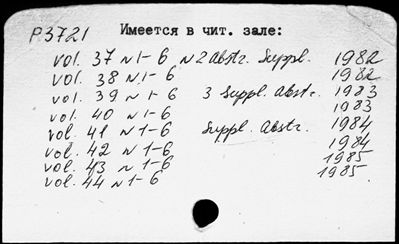 P3721 Имеется в чит. зале:
vol. 37 N 1-6 N 2 Abstr. Suppl. 1982
vol. 38 N 1-6 1982
vol. 39 N 1-6 3 Suppl. Abstr. 1983
vol. 40 N 1-6 1983
vol. 41 N 1-6 Suppl. Abstr. 1984
vol. 42 N 1-6 1984
vol. 43 N 1-6 1985
vol. 44 N 1-6 1985